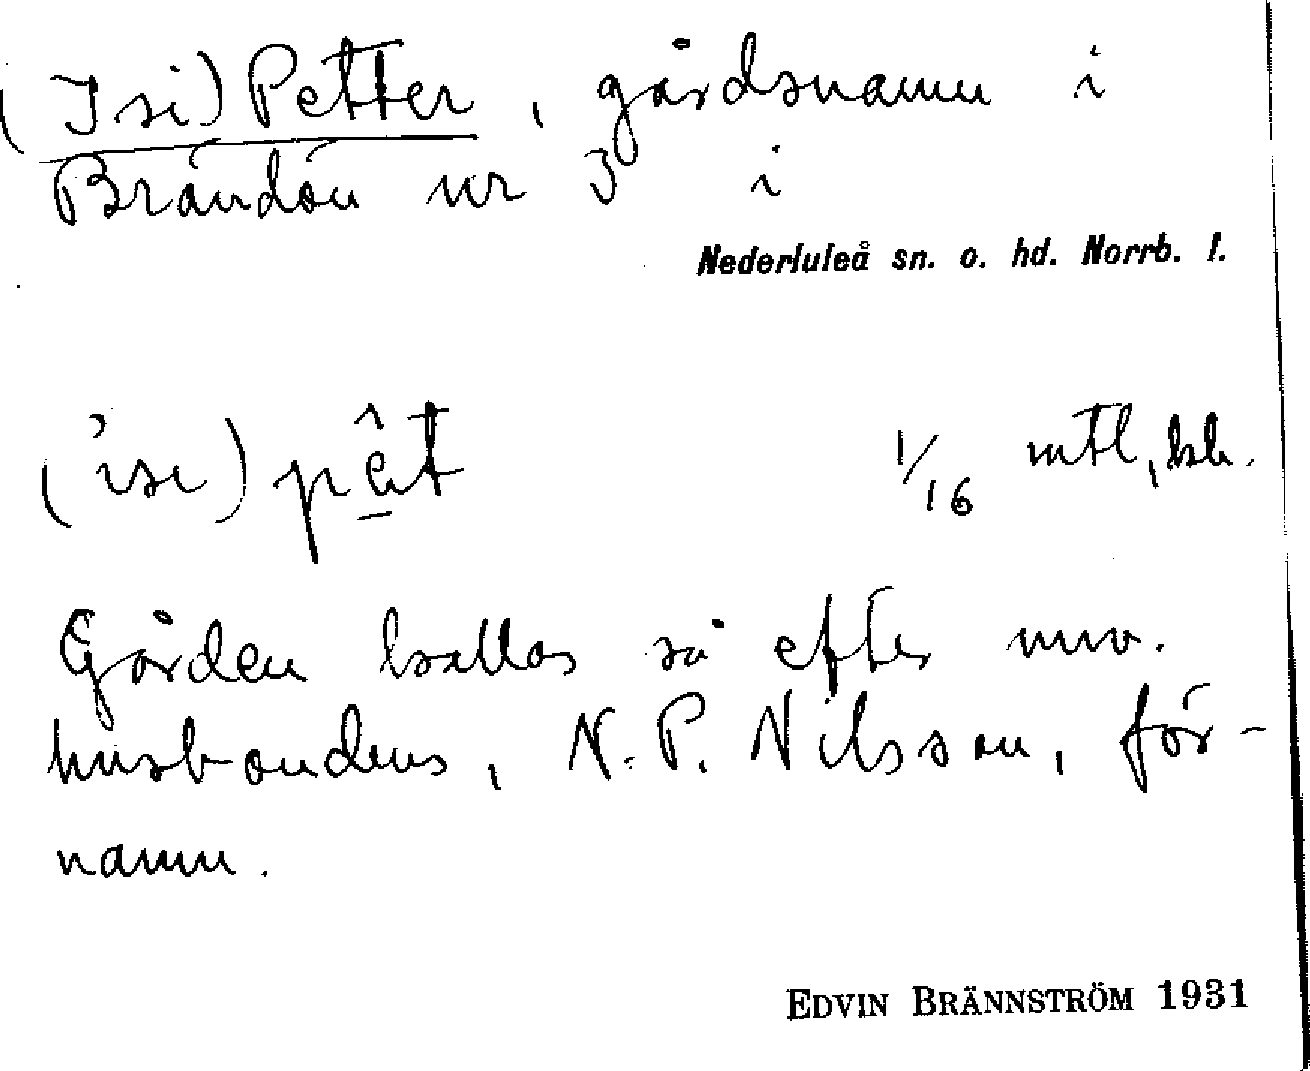 (Isi) Petter, gårdsnamn i
Brändön nr 3 i
Nederluleå sn. o. hd. Norrb. l.
('isi) pêt
1/16 mtl, kh.
Gården kallas så efter nuv.
husbondens, N. P. Nilsson, för-
namn.
EDVIN BRÄNNSTRÖM 1931